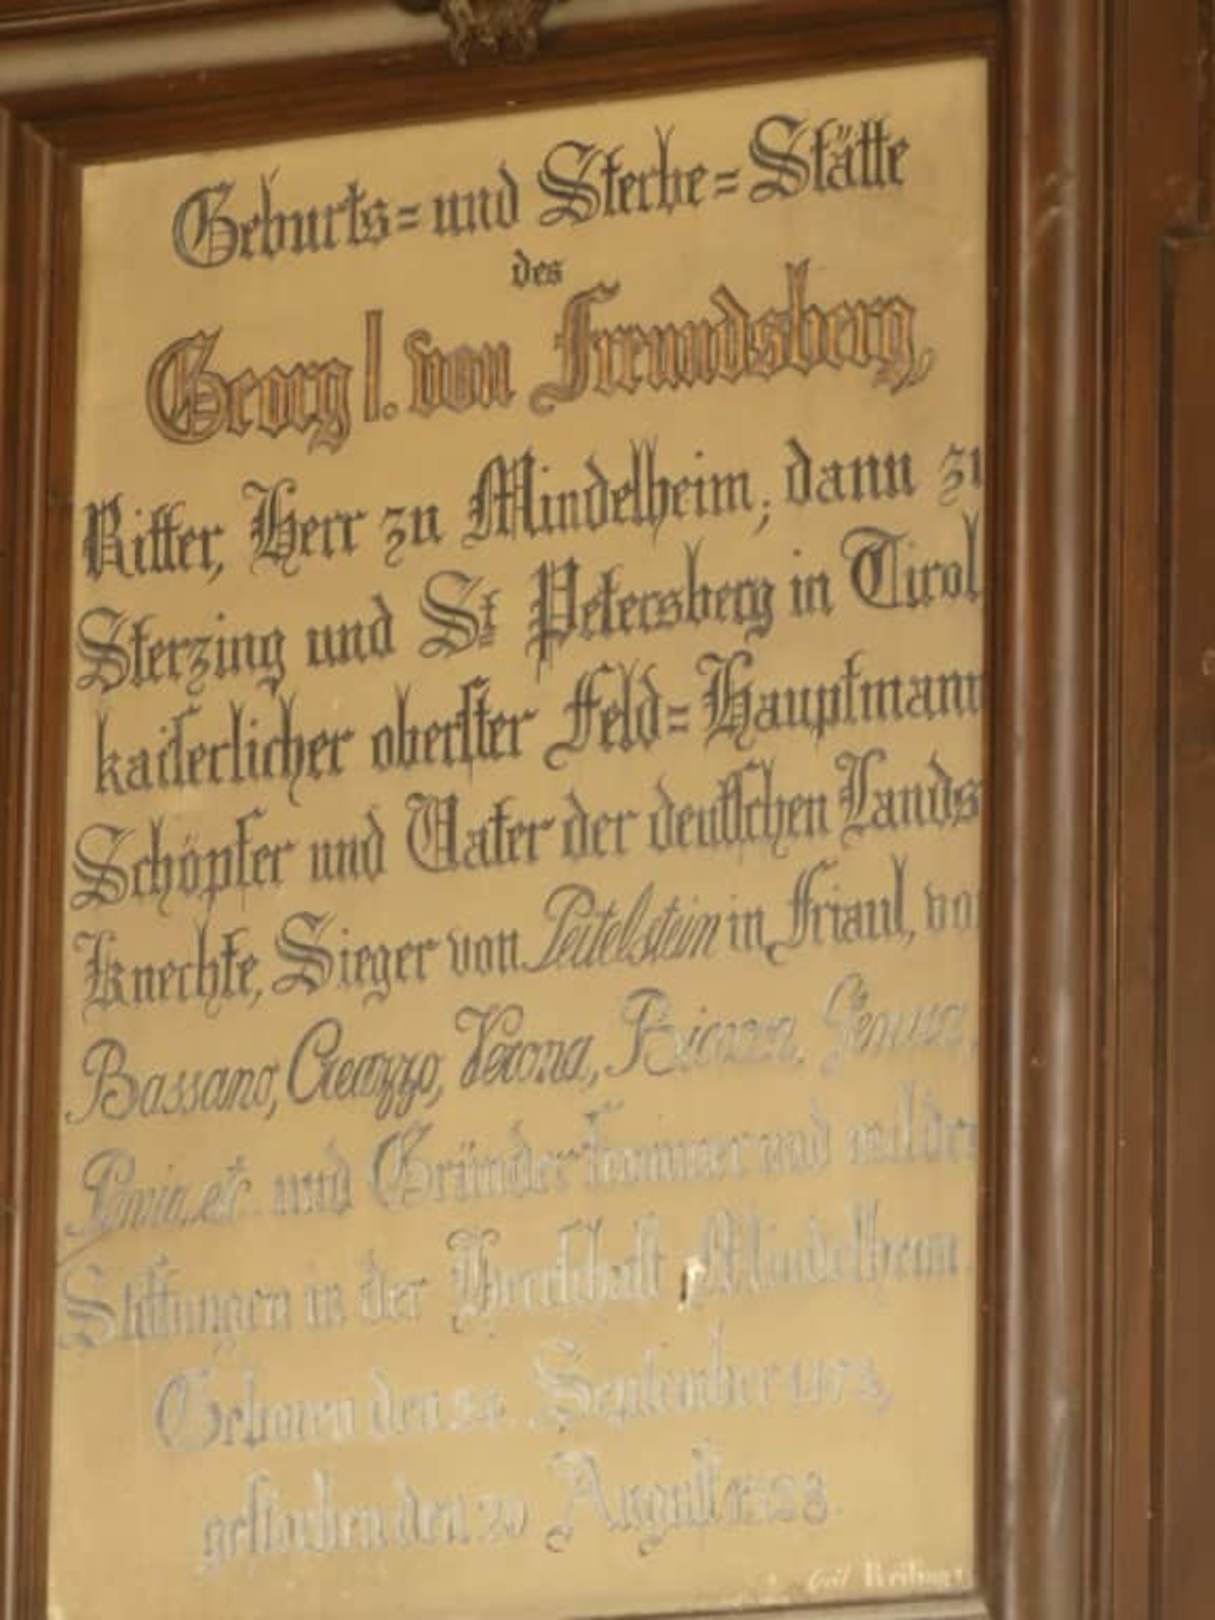 Geburts=und Sterbe=Stätte
des
Georg I. von Freundsberg,
Ritter, Herr zu Mindelheim, dann zu
Sterzing und St Petersberg in Tirol
kaiserlicher oberster Feld=Hauptmann
Schöpfer und Vater der deutschen Lands
Knechte, Sieger von Peitelstein in Friaul, von
Bassano, Creazzo, Verona, Bicocca, Genua,
Pavia, etc. und Gründer frommer und milder
Stiftungen in der Herrschaft Mindelheim.
Geboren den 24. September 1473,
gestorben den 20 August 1528.